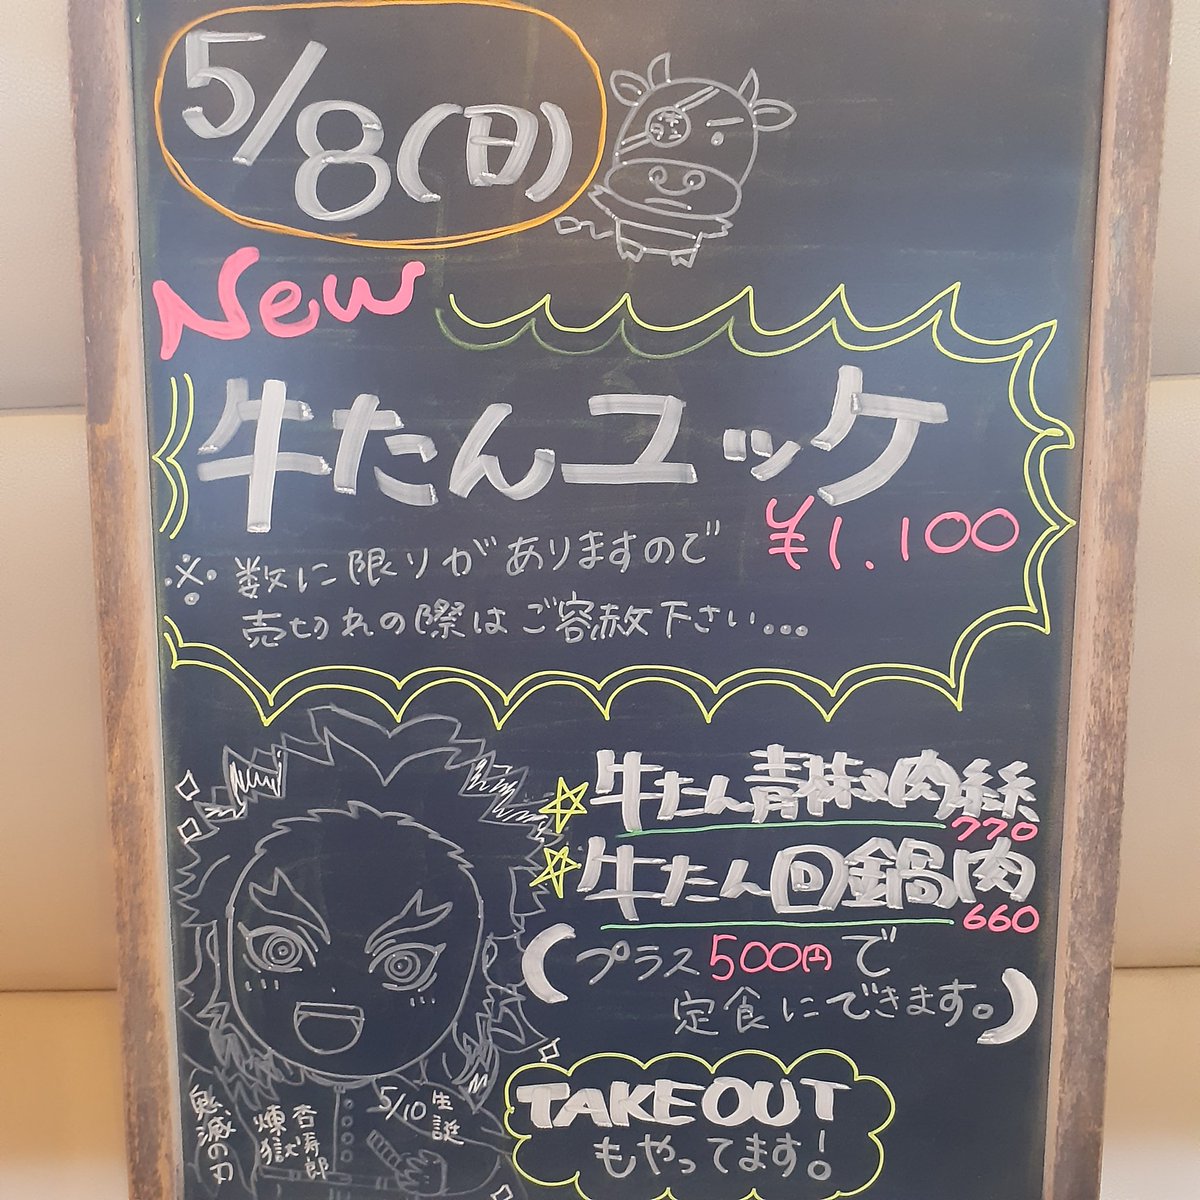 5/8(日)
New
牛たんユッケ
¥1.100
※数に限りがありますので
売切れの際はご容赦下さい...
☆牛たん青椒肉絲
770
☆牛たん回鍋肉
660
(プラス500円で
定食にできます。)
TAKEOUT
もやってます!
5/10生誕
杏寿郎
煉獄
鬼滅の刃